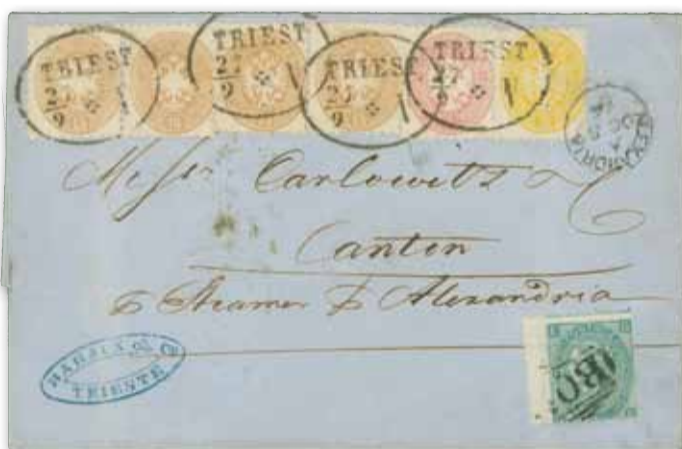 TRIEST
27
9
TRIEST
27
9
TRIEST
27
9
TRIEST
27
9
ALEXANDRIA
Messrs Carlowitz & C
Canton
p Steamer p Alexandria
& Co
TRIESTE
BO